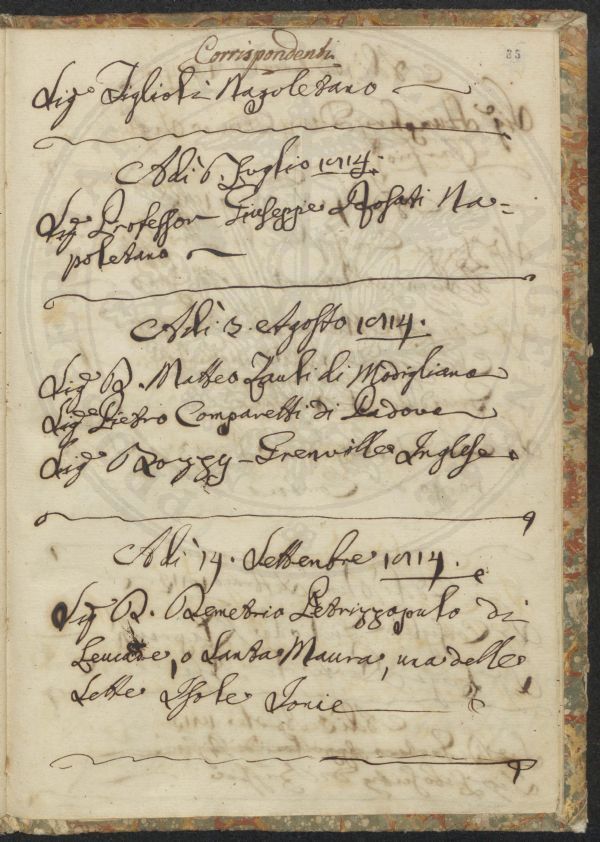 Corrispondenti
33
Sig.r Figlioli Napoletano
Adì 6. Luglio 1814.
Sig.r Professor Giuseppe Rosati Na=
poletano
Adì 3. Agosto 1814.
Sig.r D. Matteo Zauli di Modigliana
Sig.r Pietro Comparetti di Padova
Sig.r Grenville Inglese.
Adì 14. Settembre 1814.
Sig.r D. Demetrio Petrizzopulo di
Leucade, o Santa Maura, una delle
Sette Isole Jonie